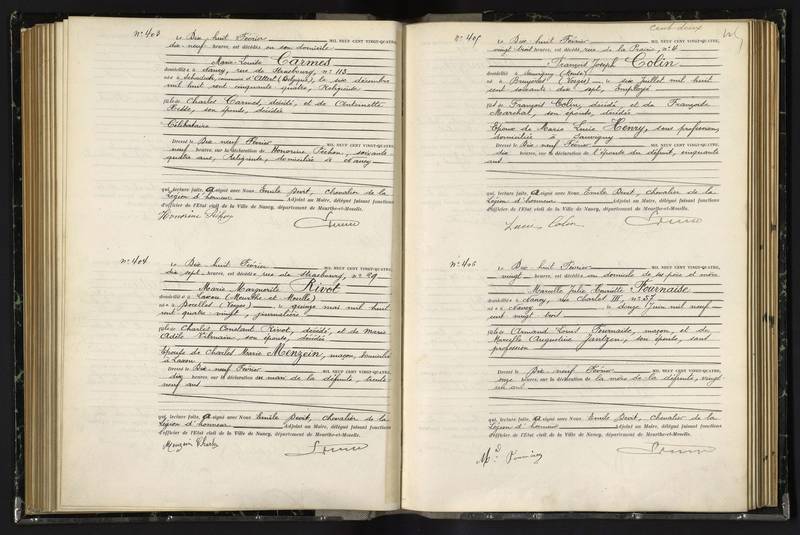 N° 403
Le Dix huit Février MIL NEUF CENT VINGT-QUATRE,
dix-neuf heures, est décédée en son domicile
Marie Louise Carmes
domiciliée à Nancy, rue de Strasbourg, n° 113
née à commune d'Attert (Belgique), le six décembre
mil huit cent cinquante quatre, Religieuse
fille de Charles Carmes, décédé, et de Antoinette
son épouse, décédée
Célibataire
Dressé le Dix neuf Février MIL NEUF CENT VINGT-QUATRE,
neuf heures, sur la déclaration de Honorine Pechon, soixante
quatre ans, Religieuse, domiciliée à Nancy
qui, lecture faite, a signé avec Nous Emile Devit, chevalier de la
Légion d'honneur Adjoint au Maire, délégué faisant fonctions
d'officier de l'Etat civil de la Ville de Nancy, département de Meurthe-et-Moselle.
Honorine
N° 404
Le Dix huit Février MIL NEUF CENT VINGT-QUATRE,
dix sept heures, est décédée rue de Strasbourg, n° 29
Marie Marguerite Rivot
domiciliée à Laxou (Meurthe et Moselle)
née à (Vosges) le quinze mai mil huit
cent quatre vingt, journalière
fille de Charles Constant Rivot, décédé, et de Marie
Adèle Vilmain, son épouse, décédée
Epouse de Charles Marie Menzein, maçon, domicilié
à Laxou
Dressé le Dix neuf Février MIL NEUF CENT VINGT-QUATRE,
dix heures, sur la déclaration du mari de la défunte, trente
neuf ans
qui, lecture faite, a signé avec Nous Emile Devit, chevalier de la
Légion d'honneur Adjoint au Maire, délégué faisant fonctions
d'officier de l'Etat civil de la Ville de Nancy, département de Meurthe-et-Moselle.
Menzein Charles
Cent deux
N° 405
Le Dix huit Février MIL NEUF CENT VINGT-QUATRE,
vingt trois heures, est décédé, rue de la Prairie, n° 4
François Joseph Colin
domicilié à Jouvigny (Meuse)
né à Bruyères (Vosges) le six Juillet mil huit
cent soixante dix sept, employé
fils de François Colin, décédé, et de Françoise
Marchal, son épouse, décédée
Epoux de Marie Lucie Henry, sans profession,
domiciliée à
Dressé le Dix neuf Février MIL NEUF CENT VINGT-QUATRE,
dix heures, sur la déclaration de l'épouse du défunt, cinquante
ans
qui, lecture faite, a signé avec Nous Emile Devit, chevalier de la
Légion d'honneur Adjoint au Maire, délégué faisant fonctions
d'officier de l'Etat civil de la Ville de Nancy, département de Meurthe-et-Moselle.
Colin
N° 406
Le Dix huit Février MIL NEUF CENT VINGT-QUATRE,
vingt heures, est décédée au domicile de ses père et mère
Marcelle Julie Henriette Fournaise
domiciliée à Nancy, rue Charles III, n° 57
née à Nancy le douze Juin mil neuf
cent vingt trois
fille de Armand Louis Fournaise, maçon, et de
Marcelle Augustine Jantzen, son épouse, sans
profession
Dressé le Dix neuf Février MIL NEUF CENT VINGT-QUATRE,
onze heures, sur la déclaration de la mère de la défunte, vingt
un ans
qui, lecture faite, a signé avec Nous Emile Devit, chevalier de la
Légion d'honneur Adjoint au Maire, délégué faisant fonctions
d'officier de l'Etat civil de la Ville de Nancy, département de Meurthe-et-Moselle.